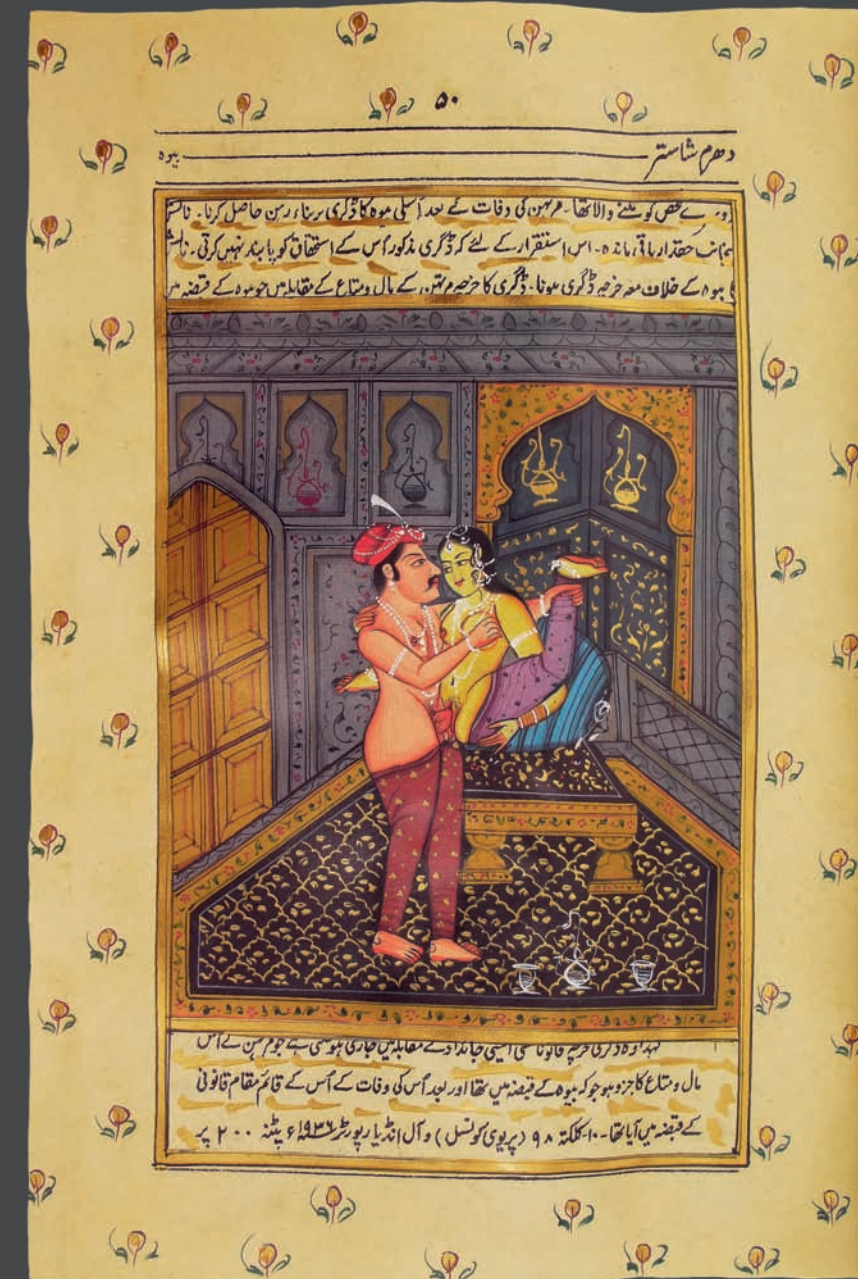 ۵۰
دھرم شاستر بیوہ
شخص کو ملنے والا تھا۔ مرتہن کی وفات کے بعد اُسکی بیوہ کا ڈگری بربناء رہن حاصل کرنا۔
حقدار باقی ماندہ۔ اس استقرار کے لئے کہ ڈگری مذکور اُس کے استحقاق کو پابند نہیں کرتی۔ نالش
بیوہ کے خلاف معہ خرچہ ڈگری ہونا۔ ڈگری کا خرچہ مرتہن کے مال ومتاع کے مقابلہ میں جو بیوہ کے قبضہ میں
ڈگری خرچہ قانوناً ایسی جائداد کے مقابلہ میں جاری ہوسکتی ہے جو مرتہن کے اُس
مال ومتاع کا جزو ہو جو کہ بیوہ کے قبضہ میں تھا اور بعد اُس کی وفات کے اُس کے قائم مقام قانونی
کے قبضہ میں آیا تھا۔ ۱۰۔ کلکتہ ۹۸ (پریوی کونسل) و آل انڈیا رپورٹر ۱۹۳۶ء پٹنہ ۲۰۰ پر